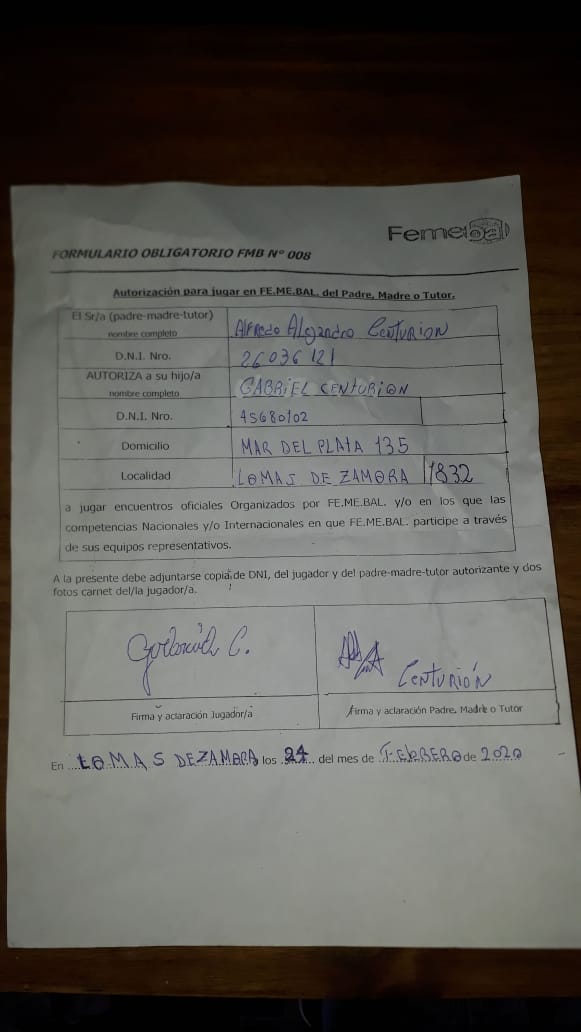 Femebal
FORMULARIO OBLIGATORIO FMB N° 008
Autorización para jugar en FE.ME.BAL. del Padre, Madre o Tutor.
El Sr/a (padre-madre-tutor)
nombre completo
Alfredo Alejandro Centurion
D.N.I. Nro.
26036121
AUTORIZA a su hijo/a
nombre completo
GABRIEL CENTURION
D.N.I. Nro.
45680102
Domicilio
MAR DEL PLATA 135
Localidad
LOMAS DE ZAMORA 1832
a jugar encuentros oficiales Organizados por FE.ME.BAL. y/o en los que las
competencias Nacionales y/o Internacionales en que FE.ME.BAL. participe a través
de sus equipos representativos.
A la presente debe adjuntarse copia de DNI, del jugador y del padre-madre-tutor autorizante y dos
fotos carnet del/la jugador/a.
C.
Centurión
Firma y aclaración Jugador/a
Firma y aclaración Padre, Madre o Tutor
En LOMAS DE ZAMORA los 24 del mes de FEBRERO de 2020